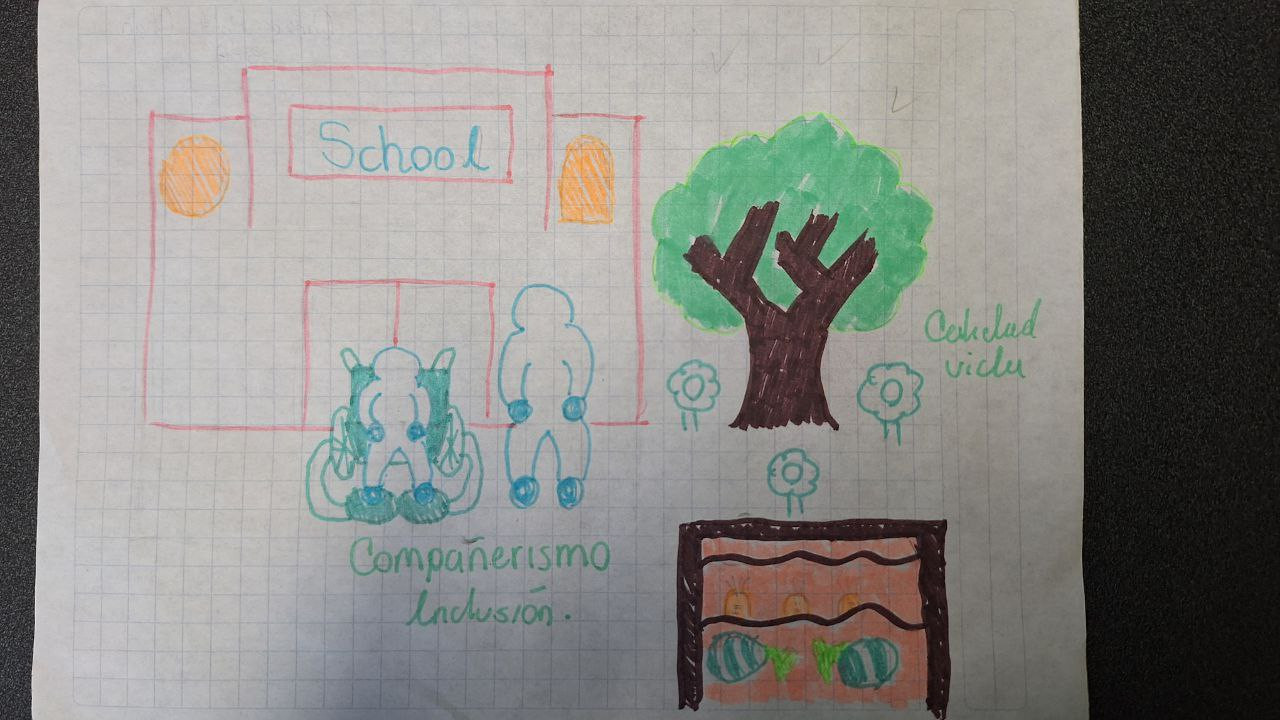 School
Calidad
vida
Compañerismo
Inclusión.